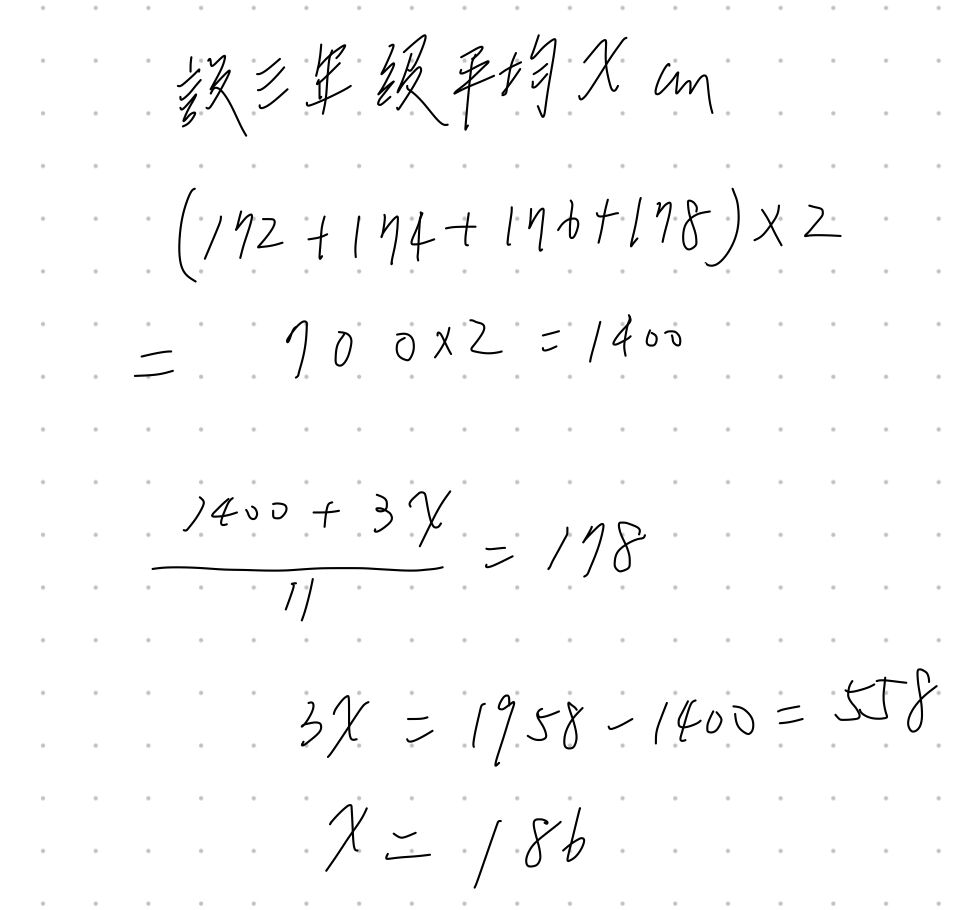 設三年級平均 x cm
(172+174+176+178)×2
= 700×2 = 1400
1400 + 3x
———— = 178
11
3x = 1958 - 1400 = 558
x = 186